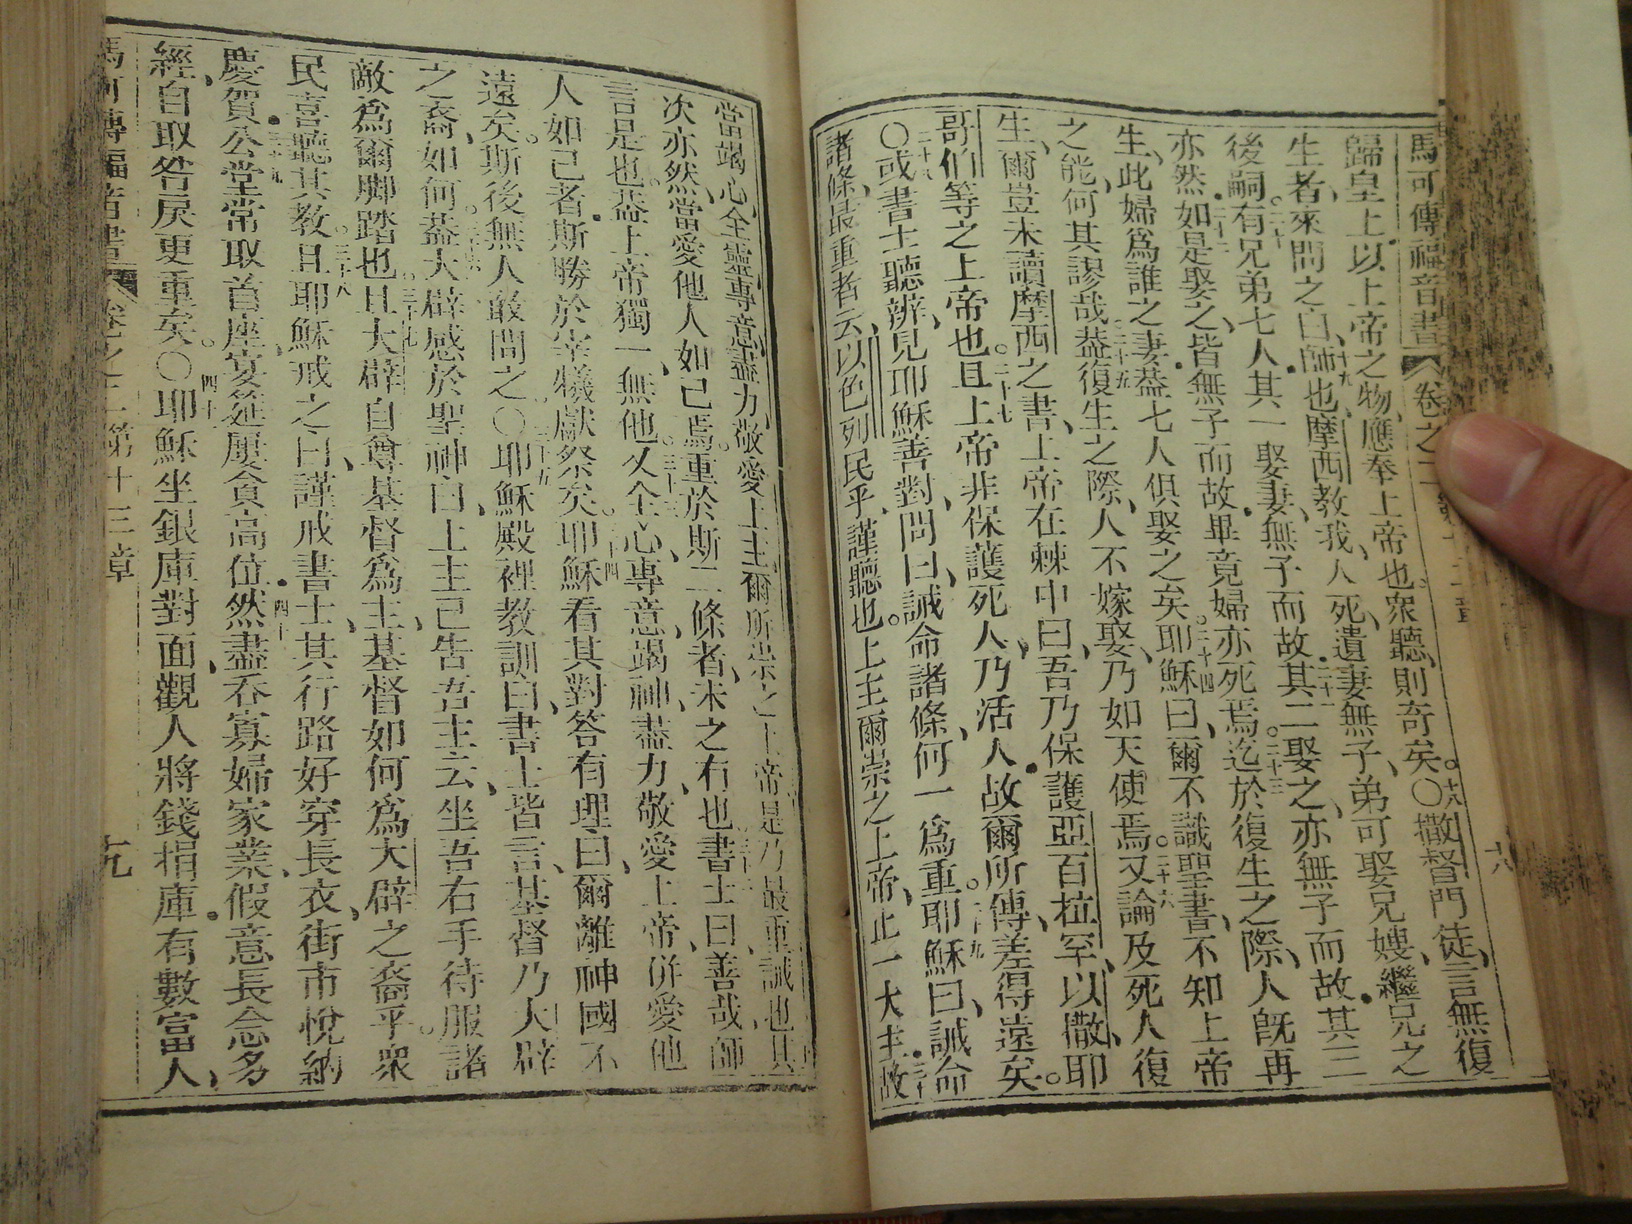 馬可傳福音書 卷之二
歸皇上以上帝之物、應奉上帝也。衆聽、則奇矣。○十八撒督門徒、言無復
生者、來問之曰、十九師也、摩西教我、人死、遺妻無子、弟可娶兄嫂、繼兄之
後嗣。二十有兄弟七人、其一娶妻、無子而故。二十一其二娶之、亦無子而故。其三
亦然。二十二如是娶之、皆無子而故。畢竟婦亦死焉。二十三迄於復生之際、人既再
生、此婦爲誰之妻、葢七人俱娶之矣。二十四耶穌曰、爾不識聖書、不知上帝
之能、何其謬哉。二十五葢復生之際、人不嫁娶、乃如天使焉。二十六又論及死人復
生、爾豈未讀摩西之書、上帝在棘中曰、吾乃保護亞百拉罕、以撒、耶
哥伯等之上帝也。二十七且上帝非保護死人、乃活人、故爾所傳、差得遠矣。
○二十八或書士聽辨、見耶穌善對、問曰、誡命諸條、何一爲重。二十九耶穌曰、誡命
諸條、最重者云、以色列民乎、謹聽也。上主爾崇之上帝、止一大主。三十故
當竭心全靈專意盡力、敬愛上主爾所崇之上帝、是乃最重誡也。其
次亦然、當愛他人如己焉。重於斯二條者、未之有也。書士曰、善哉、師
言是也。葢上帝獨一、無他。又全心、專意、竭神、盡力、敬愛上帝、併愛他
人如己者、斯勝於宰犧獻祭矣。三十四耶穌看其對答有理、曰、爾離神國不
遠矣。斯後無人敢問之。○三十五耶穌殿裡教訓曰、書士皆言、基督乃大辟
之裔、如何。三十六葢大辟感於聖神曰、上主已告吾主云、坐吾右手、待服諸
敵爲爾脚踏也。三十七且大辟自尊基督爲主、基督如何爲大辟之裔乎。衆
民喜聽其教。三十八且耶穌戒之曰、謹戒書士、其行路好穿長衣、街市悅納
慶賀。三十九公堂常取首座、宴筵屢貪高位。四十然盡吞寡婦家業、假意長念多
經、自取咎戾更重矣。○四十一耶穌坐銀庫對面、觀人將錢捐庫。有數富人、
馬可傳福音書 卷之二 第十三章 九